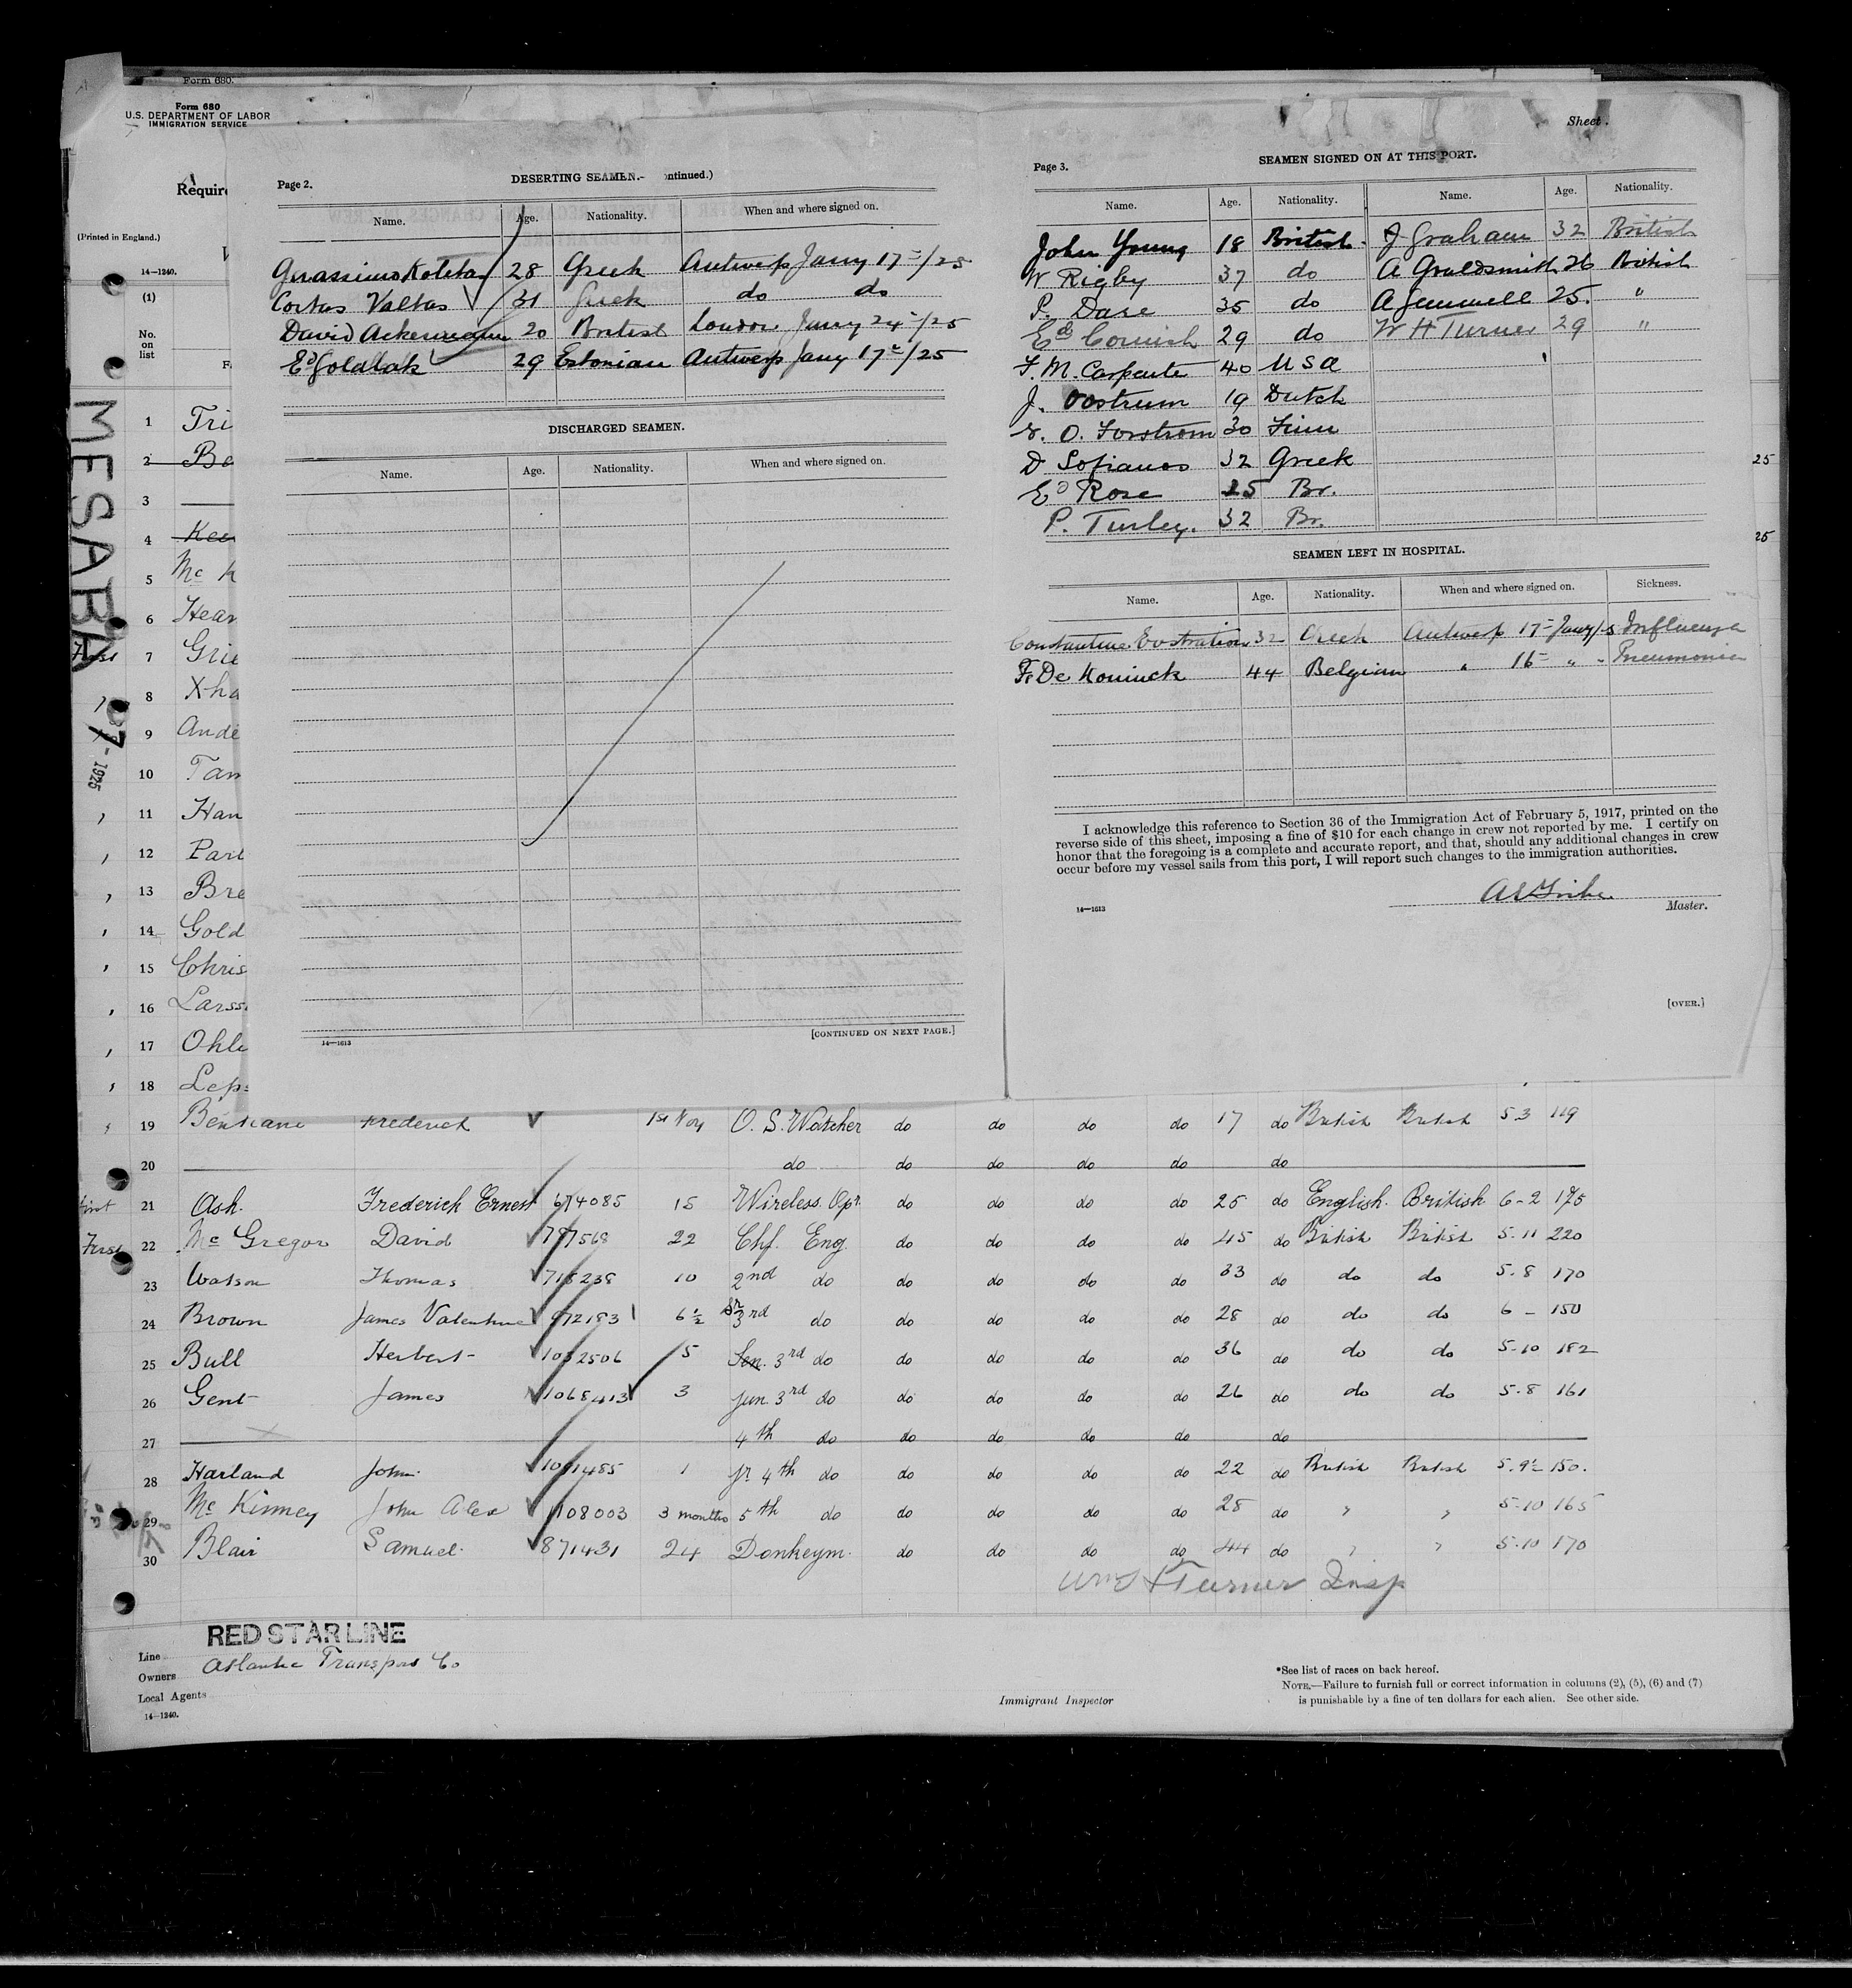 Form 680.
Form 680
U.S. DEPARTMENT OF LABOR
IMMIGRATION SERVICE
(Printed in England.)
14—1240.
(1)
No.
on
list
MESABA
1925
1 Tri
2 Be
3
4
5 Mc K
6 Hear
7 Grie
8 Xha
9 Ande
10 Tan
11 Han
12 Part
13 Bre
14 Gold
15 Chris
16 Larss
17 Ohle
18 Leps
Page 2. DESERTING SEAMEN.— ontinued.)
Name. Age. Nationality. When and where signed on.
Gerassimos 28 Greek Antwerp Jany 17/25
Costas Valtas 31 Greek do do
David Ackermann 20 British London Jany 24/25
Ed Goldlak 29 Estonian Antwerp Jany 17/25
DISCHARGED SEAMEN.
Name. Age. Nationality. When and where signed on.
[CONTINUED ON NEXT PAGE.]
14—1613
Sheet .
Page 3. SEAMEN SIGNED ON AT THIS PORT.
Name. Age. Nationality. Name. Age. Nationality.
John Young 18 British. J Graham 32 British
W Rigby 37 do A Gouldsmith 26 British
P. Dare 35 do A Gemmell 25. "
Ed Cornish 29 do W H Turner 29 "
F. M. Carpenter 40 USA
J. Oostrum 19 Dutch
O. Forstrom 30 Finn
D Sofianos 32 Greek
Ed Rose 25 Br.
P. Turley. 32 Br.
25
25
SEAMEN LEFT IN HOSPITAL.
Name. Age. Nationality. When and where signed on. Sickness.
Constantine 32 Greek Antwerp 17 Jany Influenza
F. De Koninck 44 Belgian " 16 " " Pneumonia
I acknowledge this reference to Section 36 of the Immigration Act of February 5, 1917, printed on the
reverse side of this sheet, imposing a fine of $10 for each change in crew not reported by me. I certify on
honor that the foregoing is a complete and accurate report, and that, should any additional changes in crew
occur before my vessel sails from this port, I will report such changes to the immigration authorities.
14—1613 Master.
[OVER.]
19 Frederick 1st Voy O. S. Watcher do do do do 17 do British British 5 3 119
20 do do do do do do
21 Ash. Frederick Ernest 674085 15 Wireless. Opr. do do do do 25 do English. British 6-2 175
First 22 Mc Gregor David 787568 22 Chf. Eng. do do do do 45 do British British 5-11 220
23 Watson Thomas 715238 10 2nd do do do do do 33 do do do 5.8 170
24 Brown James Valentine 972183 6½ Sr 3rd do do do do do 28 do do do 6 - 150
25 Bull Herbert 1032506 5 Sen. 3rd do do do do do 36 do do do 5-10 182
26 Gent James 1068413 3 Jun. 3rd do do do do do 26 do do do 5.8 161
27 4th do do do do do do
28 Harland John. 1091485 1 Jr. 4th do do do do do 22 do British British 5.9½ 150.
29 Mc Kinney John Alex 1108003 3 months 5th do do do do do 28 do " " 5-10 165
30 Blair Samuel. 871431 24 Donkeym. do do do do 44 do " " 5-10 170
Wm H Turner Insp
RED STAR LINE
Line
Owners Atlantic Transport Co
Local Agents
14—1240.
Immigrant Inspector
*See list of races on back hereof.
NOTE.—Failure to furnish full or correct information in columns (2), (5), (6) and (7)
is punishable by a fine of ten dollars for each alien. See other side.